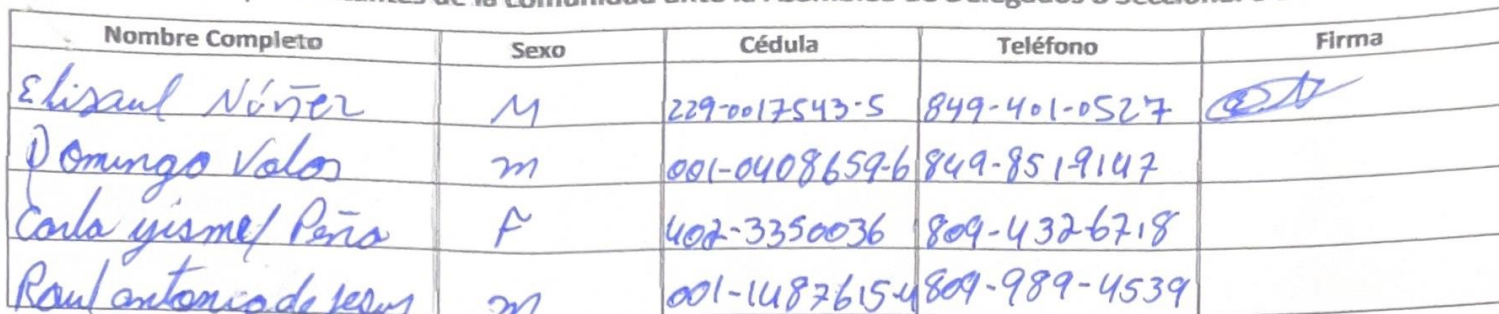 de la Comunidad ante la Asamblea de Delegados o Seccional
Nombre Completo Sexo Cédula Teléfono Firma
Elisaul Núñez M 229-0017543-5 849-401-0527
Domingo Valos m 001-0408659-6 849-851-9147
Carla yismel Peña F 402-3350036 809-432-6718
Raul antonio de Jesus m 001-1487615-4 809-989-4539